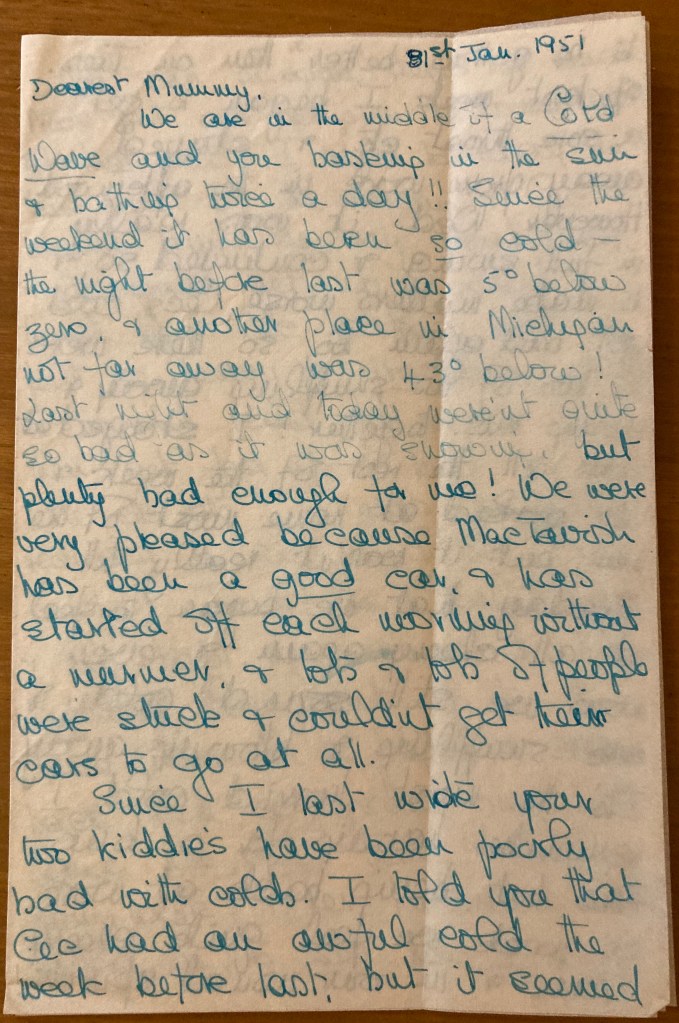 31st Jan. 1951
Dearest Mummy,
We are in the middle of a Cold
Wave and you basking in the sun
& bathing twice a day!! Since the
weekend it has been so cold –
the night before last was 5° below
zero, & another place in Michigan
not far away was 43° below!
Last night and today weren't quite
so bad as it was snowing, but
plenty bad enough for me! We were
very pleased because MacTavish
has been a good car, & has
started off each morning without
a murmer, & lots & lots of people
were stuck & couldn't get their
cars to go at all.
Since I last wrote your
two kiddies have been poorly
bad with colds. I told you that
Cec had an awful cold the
week before last, but it seemed